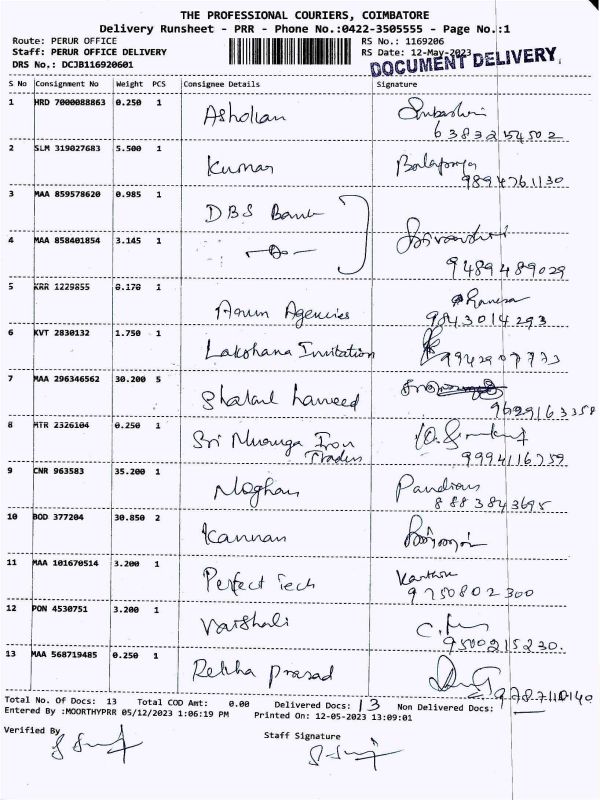 THE PROFESSIONAL COURIERS, COIMBATORE
Delivery Runsheet - PRR - Phone No.:0422-3505555 - Page No.:1
Route: PERUR OFFICE RS No.: 1169206
Staff: PERUR OFFICE DELIVERY RS Date: 12-May-2023
DRS No.: DCJB116920601 DOCUMENT DELIVERY
S No Consignment No Weight PCS Consignee Details Signature
1 HRD 7000088863 0.250 1 Ashokan
6383254502
2 SLM 319027683 5.500 1 Kumar
9894761130
3 MAA 859578620 0.985 1 DBS Bank
4 MAA 858401854 3.145 1
9489489029
5 KRR 1229855 0.170 1 Arum Agencies
9843014293
6 KVT 2830132 1.750 1 Lakshana Invitation 9942907773
7 MAA 296346562 30.200 5 Shahul hameed
9629163358
8 MTR 2326104 0.250 1 Sri Muruga Iron
Traders 9994116759
9 CNR 963583 35.200 1 Moghan Pandian
8883843695
10 BOD 377204 30.850 2 Kannan
11 MAA 101670514 3.200 1 Perfect Tech Karthik
9750802300
12 PON 4530751 3.200 1 Varshali
9500215230.
13 MAA 568719485 0.250 1 Rekha Prasad
9787110140
Total No. Of Docs: 13 Total COD Amt: 0.00 Delivered Docs: 13 Non Delivered Docs:
Entered By :MOORTHYPRR 05/12/2023 1:06:19 PM Printed On: 12-05-2023 13:09:01
Verified By Staff Signature